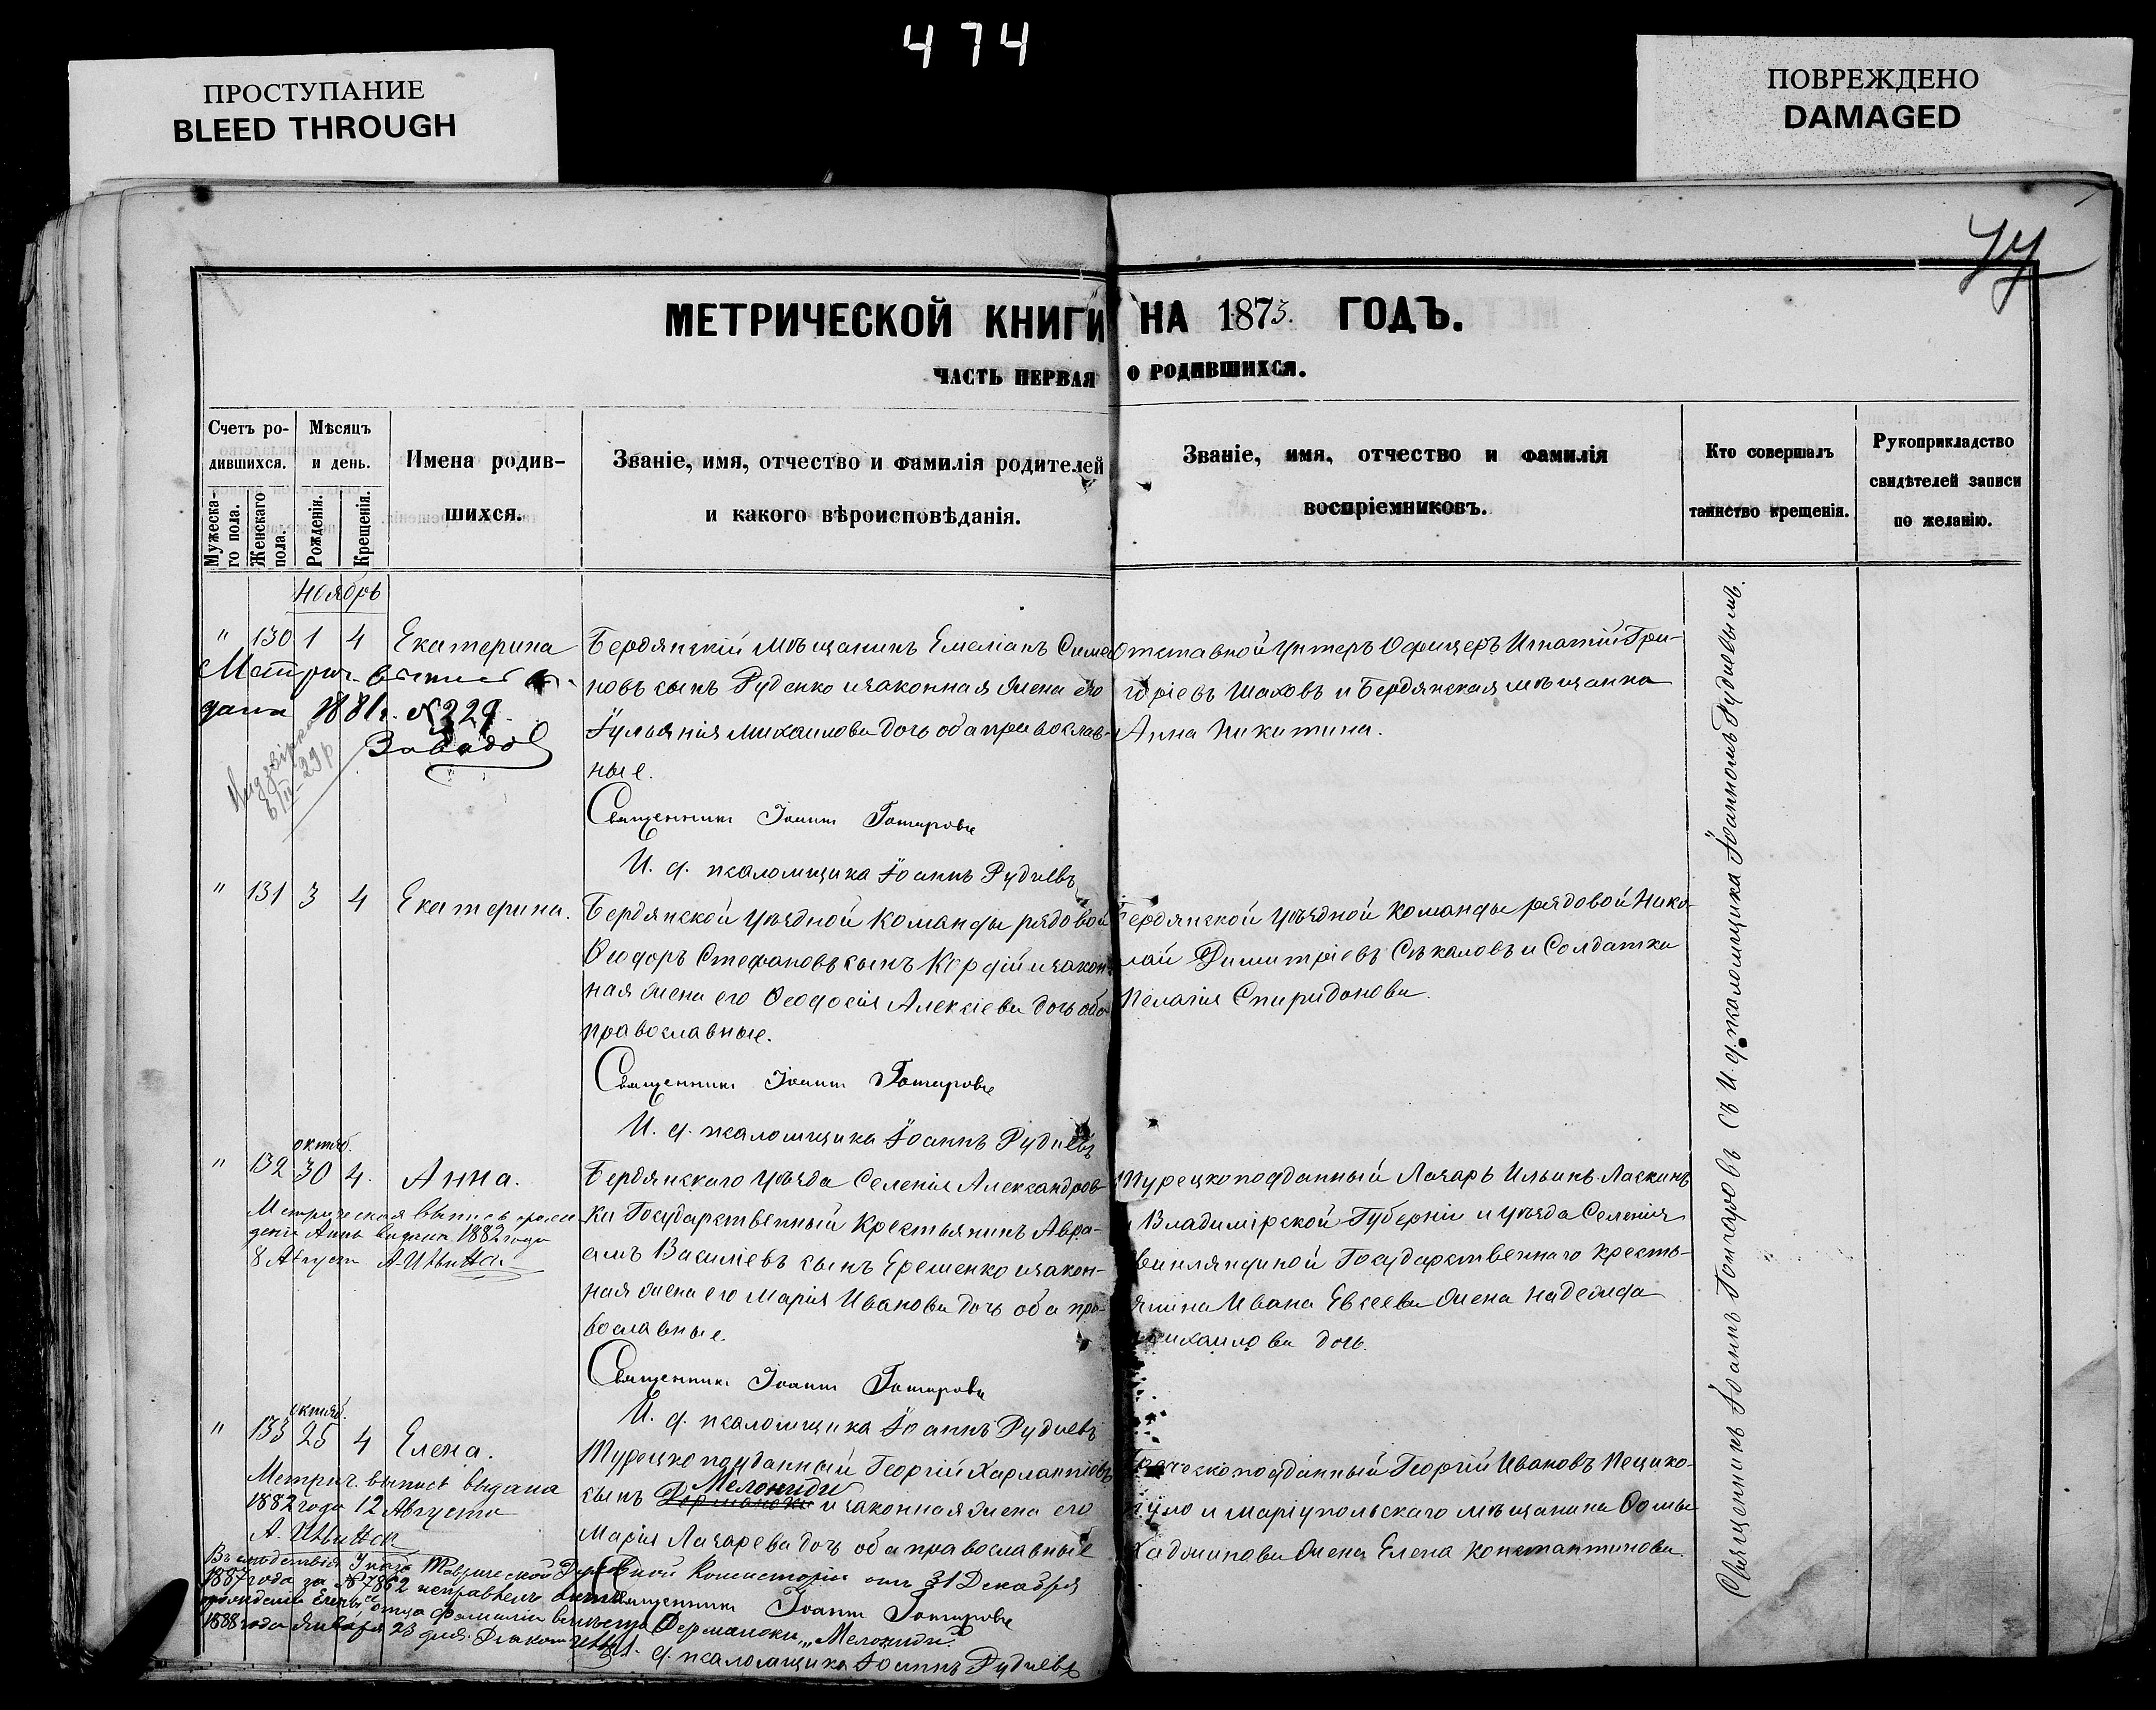 474
ПРОСТУПАНИЕ
BLEED THROUGH
ПОВРЕЖДЕНО
DAMAGED
МЕТРИЧЕСКОЙ КНИГИ НА 1873. ГОДЪ.
ЧАСТЬ ПЕРВАЯ О РОДИВШИХСЯ.
Счетъ ро-
дившихся.
Мужеска-
го пола.
Женскаго
пола.
Мѣсяцъ
и день.
Рожденія.
Крещенія.
Имена родив-
шихся.
Званіе, имя, отчество и фамилія родителей
и какого вѣроисповѣданія.
Званіе, имя, отчество и фамилія
воспріемниковъ.
Кто совершалъ
таинство крещенія.
Рукоприкладство
свидѣтелей записи
по желанію.
Ноябрь
" 130 1 4 Екатерина
Метрич.
дана 1881г. №329.
Бердянскій мѣщанинъ Емеліанъ Симео
новъ сынъ Руденко и законная жена его
Іульянія Михаилова дочь оба православ-
ные.
Священникъ Іоаннъ Гончаровъ
И. д. псаломщика Іоаннъ Рудневъ
Отставной Унтеръ Офицеръ Игнатій Гри-
горіевъ Шаховъ и Бердянская мѣщанка
Анна Никитина.
" 131 3 4 Екатерина.
Бердянской уѣздной команды рядовой
Ѳеодоръ Стефановъ сынъ и закон-
ная жена его Ѳеодосія Алексіева дочь оба
православные.
Священникъ Іоаннъ Гончаровъ
И. д. псаломщика Іоаннъ Рудневъ
Бердянской уѣздной команды рядовой Нико-
лай Димитріевъ Сѣкаловъ и Солдатка
Пелагія Спиридонова.
октяб.
" 132 30 4. Анна.
Метрическая выпись о рож-
деніи Анны выдана 1882 года
8 Августа
Бердянскаго уѣзда Селенія Александров-
ки Государственный Крестьянинъ Авра-
амъ Василіевъ сынъ Ерешенко и закон-
ная жена его Марія Иванова дочь оба пра-
вославные.
Священникъ Іоаннъ Гончаровъ
И. д. псаломщика Іоаннъ Рудневъ
Турецкоподданный Лазарь Ильинъ Ласкинъ
и Владимірской Губерніи и уѣзда Селенія
Государственнаго кресть-
янина Ивана Евсеева жена Надежда
Михаилова дочь.
октяб.
" 133 25 4 Елена.
Метрич. выпись выдана
1882 года 12 Августа
Турецкоподданный Георгій Харлампіевъ
Мелониди
сынъ и законная жена его
Марія Лазарева дочь оба православные
Священникъ Іоаннъ Гончаровъ
И. д. псаломщика Іоаннъ Рудневъ
подданный Георгій Ивановъ Пецико-
пуло и маріупольскаго мѣщанина Ѳомы
Хаджинова жена Елена Константинова.
Въ слѣдствіе Указа Таврической Духовной Консисторіи отъ 31 Декабря
1887 года за № 7862 исправлена
рожденіи Елены отца фамилія вмѣсто Фермалоки „Мелониди."
1888 года Января 23 дня.
Священникъ Іоаннъ Гончаровъ съ И. д. псаломщика Іоанномъ Рудневымъ.